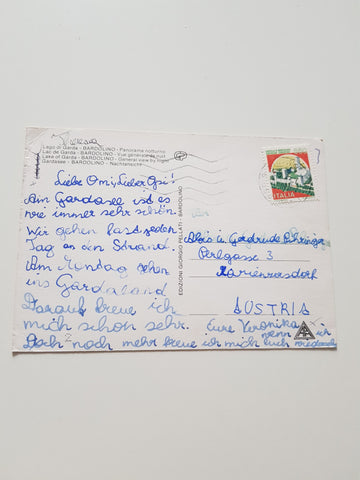 Lago di Garda - BARDOLINO - Panorama notturno
Lac de Garda - BARDOLINO - Vue générale de nuit
Lake of Garda - BARDOLINO - General view by night
Gardasee - BARDOLINO - Nachtansicht
Liebe Omi, Lieber Opi!
Am Gardasee ist es
wie immer sehr schön.
Wir gehen fast jeden
Tag an den Strand.
Am Montag gehen
ins Gardaland
Darauf freue ich
mich schon sehr.
Doch noch mehr freue ich mich
wenn ich
euch wieder
Eure Veronika
EDIZIONI GIORGIO PELLATI - BARDOLINO
ITALIA
Alois u. Gertrude
Perlgasse 3
AUSTRIA